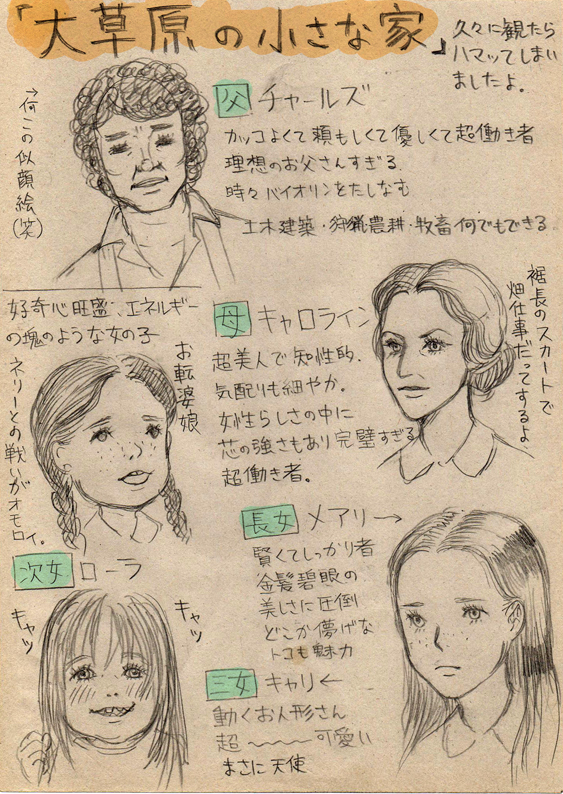 「大草原の小さな家」
久々に観たら
ハマッてしまい
ましたよ。
→何この似顔絵(笑)
父 チャールズ
カッコよくて頼もしくて優しくて超働き者
理想のお父さんすぎる.
時々バイオリンをたしなむ
土木建築・狩猟農耕・牧畜何でもできる
母 キャロライン
超美人で知性的.
気配りも細やか。
女性らしさの中に
芯の強さもあり完璧すぎる
超働き者。
裾長のスカートで
畑仕事だってするよ.
好奇心旺盛、エネルギー
の塊のような女の子
お転婆娘
ネリーとの戦いがオモロイ。
次女 ローラ
長女 メアリー→
賢くてしっかり者
金髪碧眼の
美しさに圧倒
どこか儚げな
トコも魅力
三女 キャリ←
動くお人形さん
超〜〜〜可愛い
まさに天使
キャッ
キャッ